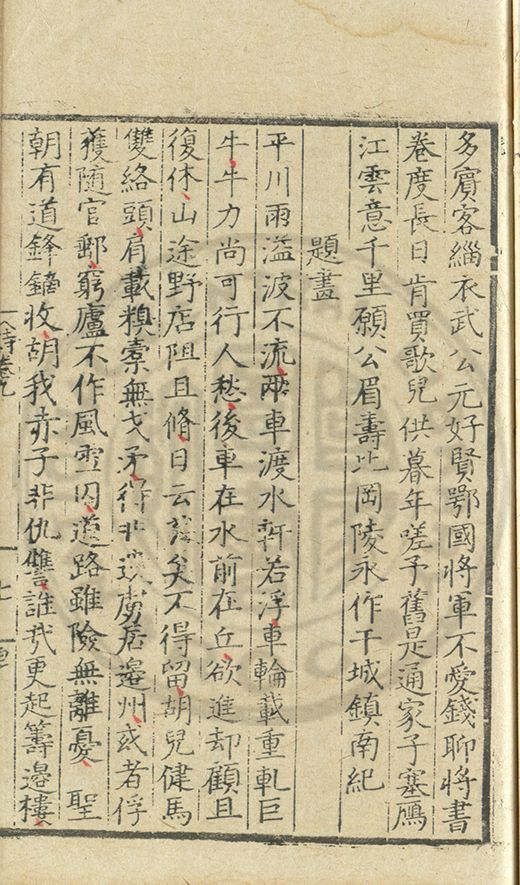 多賓客緇衣武公元好賢鄂國將軍不愛錢聊將書
卷度長日肯買歌兒供暮年嗟予舊是通家子塞鴈
江雲意千里願公眉壽比岡陵永作干城鎮南紀
題畫
平川雨溢波不流兩車渡水新若浮車輪載重軋巨
牛牛力尚可行人愁後車在水前在丘欲進却顧且
復休山途野店阻且脩日云莫矣不得留胡兒健馬
雙絡頭肩載糗橐無戈矛得非逃虜居邊州或者俘
獲隨官郵窮廬不作風雪囚道路雖險無離憂 聖
朝有道鋒鏑收胡我赤子非仇讐誰哉更起籌邊樓
詩卷九
十七